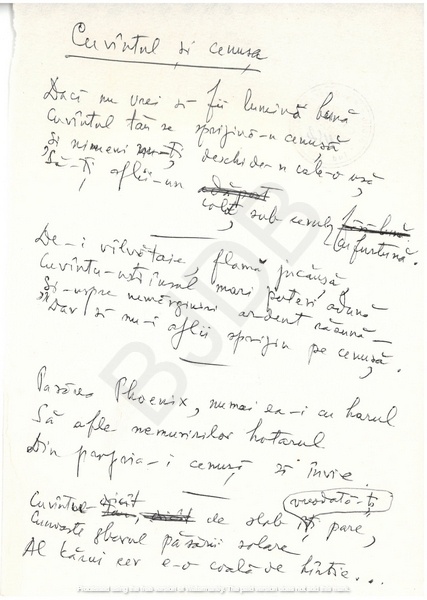 Cuvîntul și cenușa
Dacă nu vrei să fii lumină bună
Cuvîntul tău se sprijină-n cenușă
Și nimeni nu-ți deschide-n cale-o ușă
Să-ți afli-un adăpost
colț sub cerul fără lună
cu furtună.
De-i vîlvătaie, flamă jucăușă,
Cuvîntu-n sine mari puteri adună
Și-nspre nemărginiri ardent răsună –
Dar să nu-i afli sprijin pe cenușă.
Pasărea Phoenix, numai ea-i cu harul
Să afle nemuririlor hotarul
Din propria-i cenușă să învie.
vreodată-ți
Cuvîntul de slab îți pare,
Cunoaște zborul păsării solare
Al cărui cer e-o coală de hîrtie...
BJDB